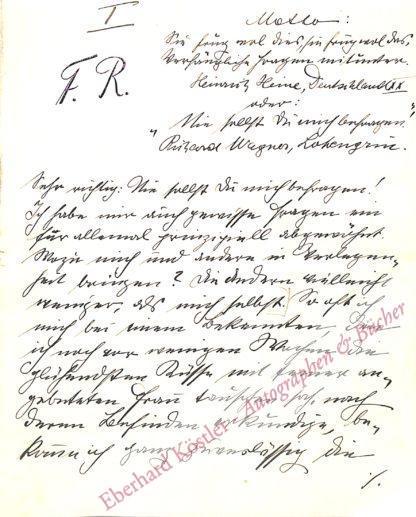 I
F. R.
Motto:
Sie frug wol dies, sie frug wol das,
Verfängliche Fragen mitunter.
Heinrich Heine, Deutschland XX
oder:
"Nie sollst Du mich befragen!"
Richard Wagner, Lohengrin.
Sehr richtig: Nie sollst Du mich befragen!
Ich habe mir auch gewisse Fragen ein
für allemal prinzipiell abgewöhnt
Wozu mich und andere in Verlegen-
heit bringen? Die Andern vielleicht
weniger, als mich selbst. So oft ich
mich bei einem Bekannten, den
ich noch vor wenigen Wochen die
glühendsten Küsse mit seiner an-
gebeteten Frau tauschen sah, nach
deren Befinden erkundige, be-
komm ich ganz zuverlässig die
./.
Eberhard Köstler Autographen & Bücher